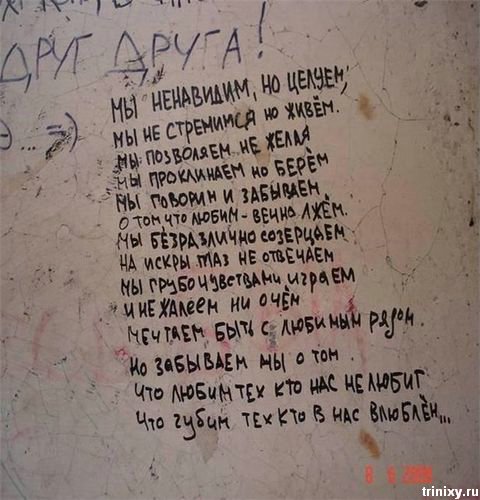 ДРУГ ДРУГА!
МЫ НЕНАВИДИМ, НО ЦЕЛУЕМ,
МЫ НЕ СТРЕМИМСЯ НО ЖИВЁМ.
МЫ ПОЗВОЛЯЕМ НЕ ЖЕЛАЯ
МЫ ПРОКЛИНАЕМ НО БЕРЁМ
МЫ ГОВОРИМ И ЗАБЫВАЕМ
О ТОМ ЧТО ЛЮБИМ - ВЕЧНО ЛЖЁМ.
МЫ БЕЗРАЗЛИЧНО СОЗЕРЦАЕМ
НА ИСКРЫ ГЛАЗ НЕ ОТВЕЧАЕМ
МЫ ГРУБО ЧУВСТВАМИ ИГРАЕМ
И НЕ ЖАЛЕЕМ НИ О ЧЁМ
МЕЧТАЕМ БЫТЬ С ЛЮБИМЫМ РЯДОМ.
НО ЗАБЫВАЕМ МЫ О ТОМ.
ЧТО ЛЮБИМ ТЕХ КТО НАС НЕ ЛЮБИТ
ЧТО ГУБИМ ТЕХ КТО В НАС ВЛЮБЛЁН...
trinixy.ru